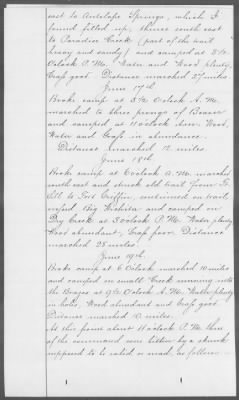 east to Antelope Springs, which I
found filled up, thence south east
to Paradise Creek, (part of the trail
heavy and sandy) and camped at 3½
Oclock P. M. Water and Wood plenty,
Grass good. Distance marched 27 miles.
June 17th
Broke camp at 5½ Oclock A. M.
marched to three prongs of Beaver
and camped at 11 oclock A.M. Wood,
Water and Grass in abundance.
Distance marched 12 miles.
June 18th
Broke camp at 6 oclock A. M. marched
south east and struck old trail from Ft.
Sill to Fort Griffin, continued on trail
crossed Big Wichita and camped on
Dry Creek at 3 oclock P. M. Water plenty
Wood abundant, Grass poor. Distance
marched 28 miles.
June 19th
Broke camp at 6 Oclock marched 10 miles
and camped on small Creek running into
the Brazos at 9½ Oclock A. M. Water plenty
in holes, Wood abundant and Grass good.
Distance marched 10 miles.
At this point about 11 oclock P. M. three
of the command were bitten by a skunk
supposed to be rabid or mad, as follows